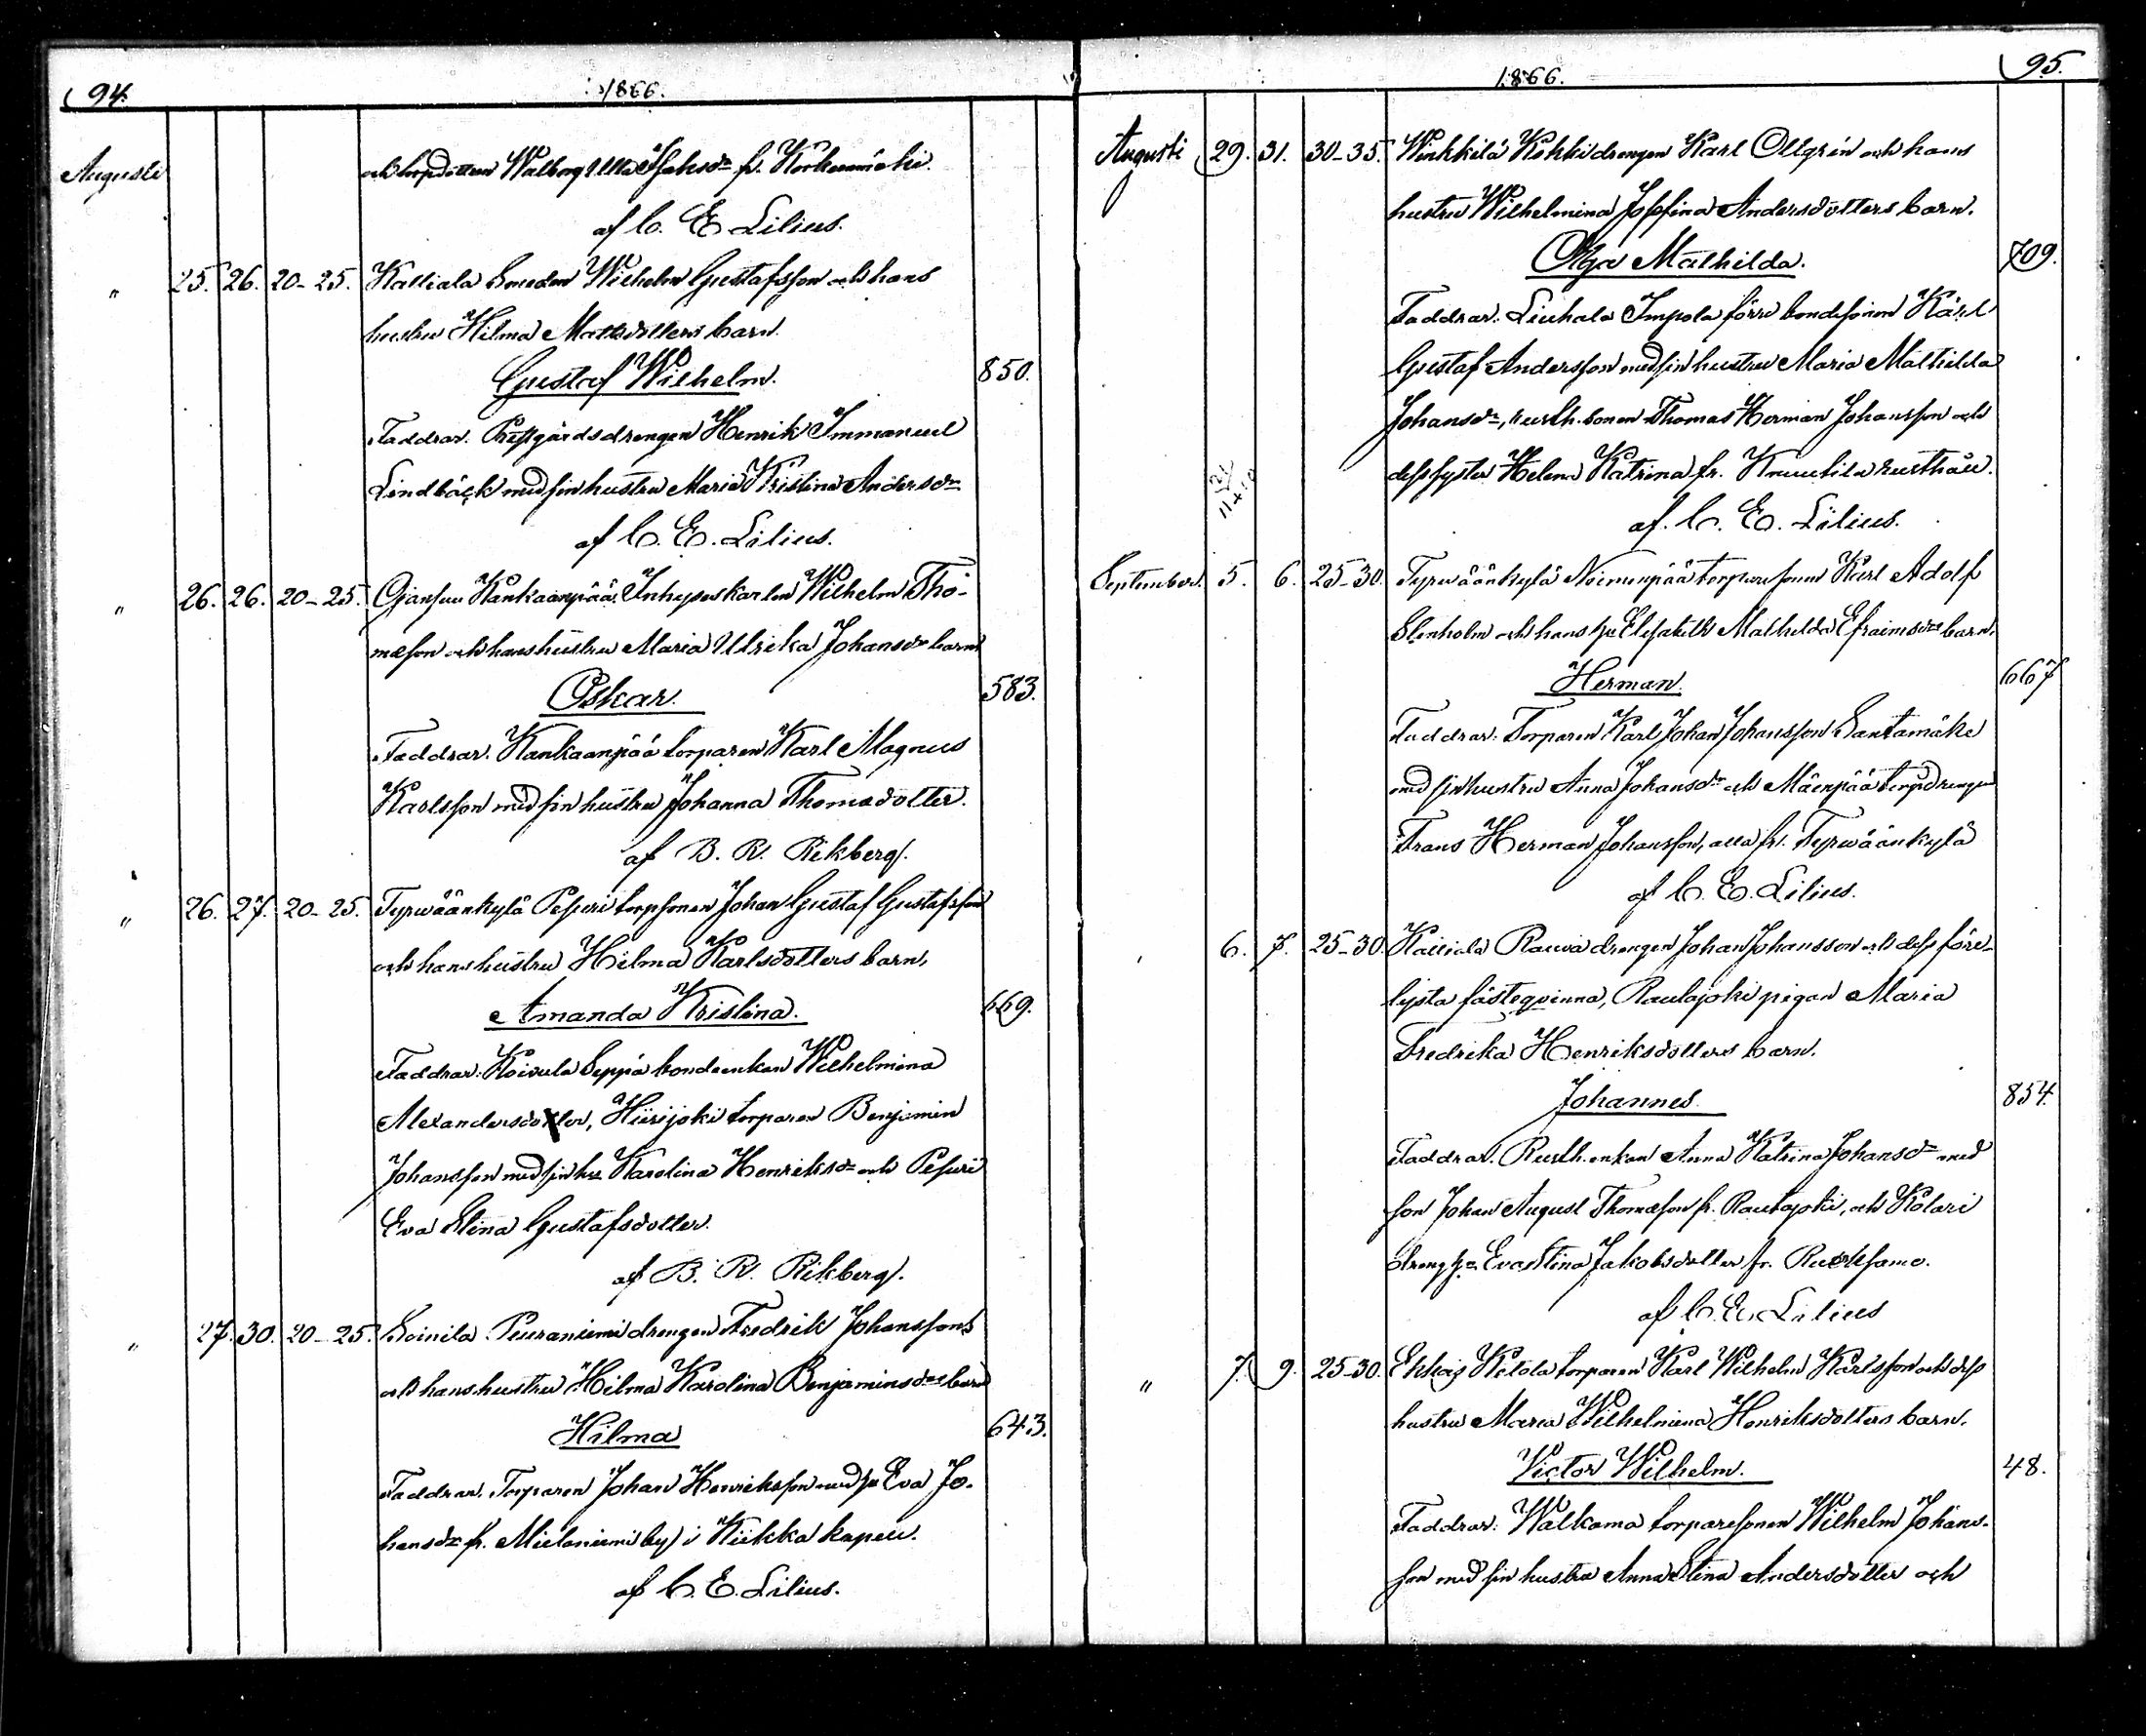 94.
1866.
Augusti
och torpdottern Walborg Ulla Isaksdr fr. Korkeamäki.
af C. E. Lilius.
" 25. 26. 20-25. Kalliala Smeden Wilhelm Gustafsson och hans
hustru Hilma Matsdotters barn.
Gustaf Wilhelm. 850.
Faddrar. Prestgårdsdrengen Henrik Immanuel
Lindbäck med sin hustru Maria Kristina Andersdr
af C. E. Lilius.
" 26. 26. 20-25. Ojansuu Kankaanpää Inhyseskarlen Wilhelm Tho-
masson och hans hustru Maria Ulrika Johansdrs barn
Oskar. 583.
Faddrar. Kankaanpää torparen Karl Magnus
Karlsson med sin hustru Johanna Thomasdotter.
af B. R. Rikberg.
" 26. 27. 20-25. Tyrwäänkylä Pesuri torpsonen Johan Gustaf Gustafsson
och hans hustru Hilma Karlsdotters barn,
Amanda Kristina. 669.
Faddrar: Koivula Seppä bondeenkan Wilhelmina
Alexandersdotter, Hiirijoki torparen Benjamin
Johansson med sin hu Karolina Henriksdr och Pesuri
Eva Stina Gustafsdotter.
af B. R. Rikberg.
" 27. 30. 20-25. Soinila Peuraniemi drengen Fredrik Johanssons
och hans hustru Hilma Karolina Benjaminsdrs barn
Hilma 643.
Faddrar. Torparen Johan Henriksson med hu Eva Jo-
hansdr fr. Mielaniemi by i Kiikka kapell.
af C. E. Lilius.
95.
1866.
Augusti 29. 31. 30-35. Winkkilä Kokki drengen Karl Ollgrén och hans
hustru Wilhelmina Josefina Andersdotters barn.
Olga Mathilda. 709.
Faddrar: Liuhala Impola förre bondesonen Karl
Gustaf Andersson med sin hustru Maria Mathilda
Johansdr, rusth. sonen Thomas Herman Johansson och
dess syster Helena Katrina fr. Knuutila rusthåll.
af. C. E. Lilius.
September. 5. 6. 25-30. Tyrwäänkylä Noimonpää torparesonen Karl Adolf
Stenholm och hans hu Elisabeth Mathilda Efraimsdrs barn.
Herman. 667
Faddrar: Torparen Karl Johan Johansson Santamäki
med sin hustru Anna Johansdr och Mäenpää torpdrengen
Frans Herman Johansson, alla fr. Tyrwäänkylä
af C. E. Lilius.
" 6. 7. 25-30. Kalliala Rauwa drengen Johan Johansson och dess före-
lysta fästeqvinna, Rautajoki pigan Maria
Fredrika Henriksdotters barn.
Johannes. 854.
Faddrar. Rusth. enkan Anna Katrina Johansdr med
son Johan August Thomasson fr. Rautajoki, och Kolari
dreng hu Eva Stina Jakobsdotter fr. Ruoksamo.
af C. E. Lilius
" 7. 9. 25-30. Ekkoij Kilola torparen Karl Wilhelm Karlsson och dess
hustru Maria Wilhelmina Henriksdotters barn.
Victor Wilhelm. 48.
Faddrar: Walkama torparesonen Wilhelm Johans-
son med sin hustru Anna Stina Andersdotter och